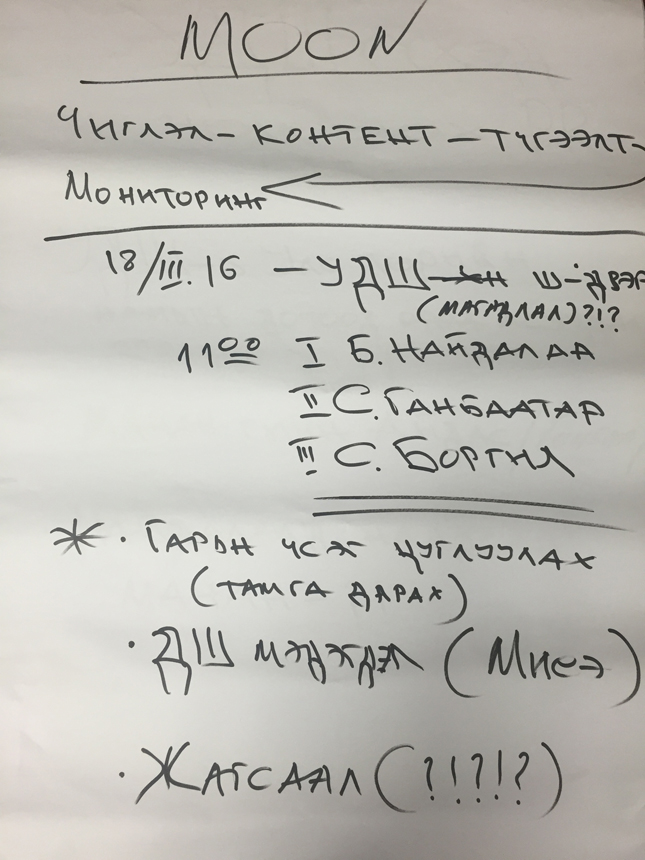 MOON
Чиглэл - КОНТЕНТ - ТҮГЭЭЛТ -
Мониторинг
18/III.16 - УДШ-ын Ш-ДВЭР
(МАГАДЛАЛ)?!?
11⁰⁰ I Б. НАЙДАЛАА
II С. ГАНБААТАР
III С. БОРГИЛ
* · ГАРЫН ҮСЭГ ЦУГЛУУЛАХ
(ТАМГА ДАРАХ)
· ДШ МЭДЭГДЭЛ (Мисэ)
· ЖАГСААЛ (?!?!?)